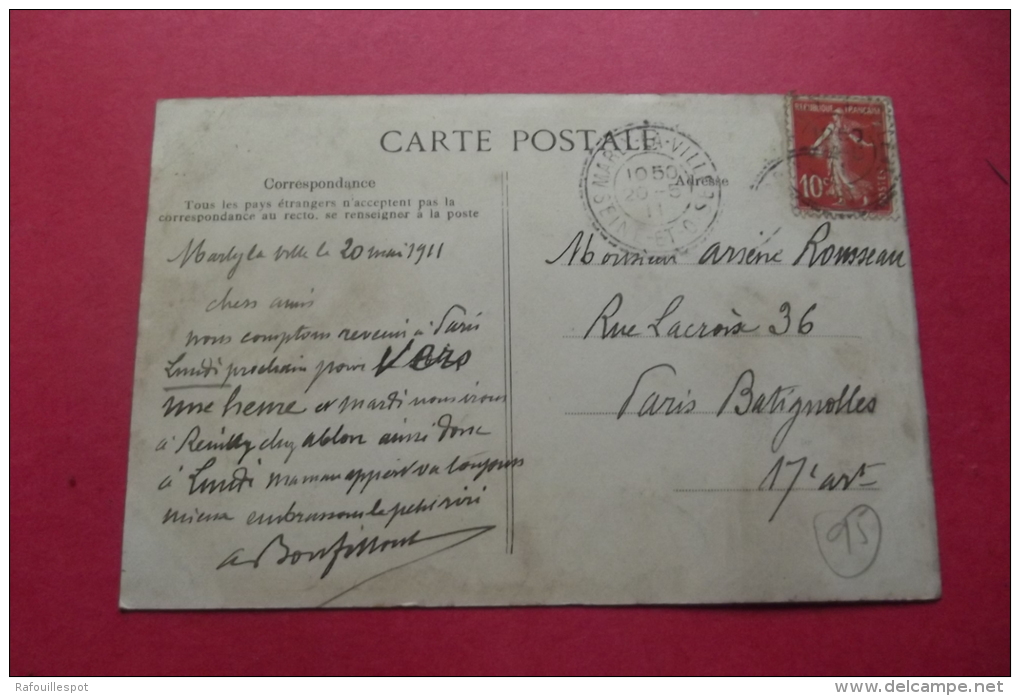 CARTE POSTALE
Correspondance
Tous les pays étrangers n'acceptent pas la
correspondance au recto. se renseigner à la poste
Adresse
MARLY-LA-VILLE
SEINE-ET-O
10 50
20 - 5
11
RÉPUBLIQUE FRANÇAISE
10c
POSTES
Marly la ville le 20 mai 1911
chers amis
nous comptons revenir à Paris
Lundi prochain pour vers
une heure et mardi nous irons
à Reuilly chez ablon ainsi donc
à Lundi maman va toujours
mieux embrassons le petit riri
a Bonfillout
Monsieur Arsène Rousseau
Rue Lacroix 36
Paris Batignolles
17e art
95
Rafouillespot
www.delcampe.net